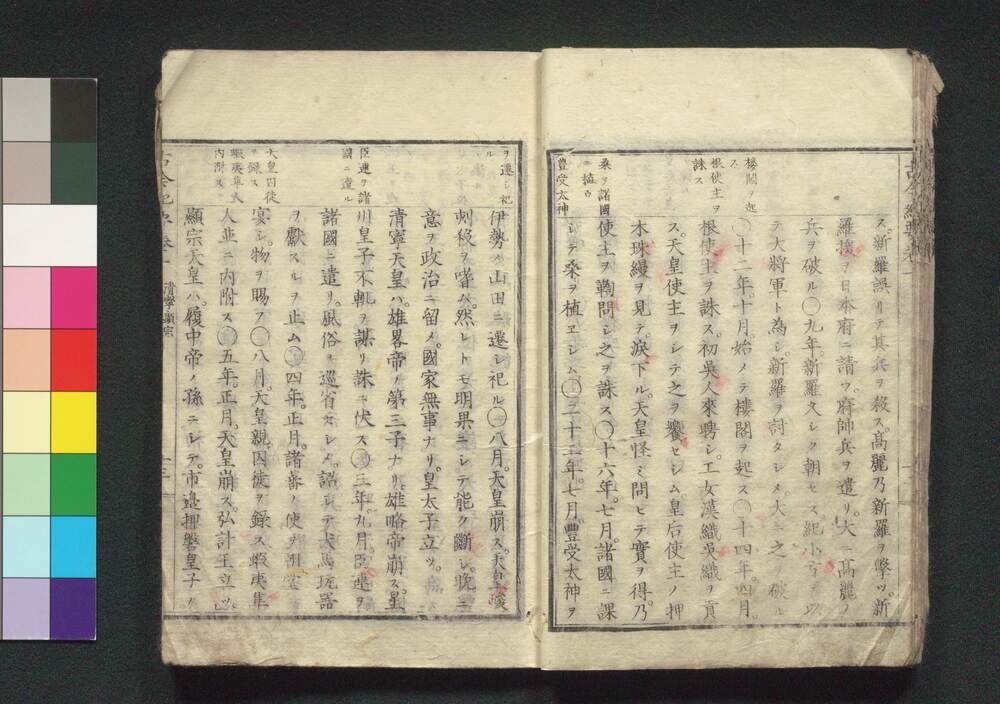 樓閣ヲ起
ス
根使主ヲ
誅ス
桑ヲ諸國
ニ植ウ
豊受太神
ス。新羅誤リテ其兵ヲ殺ス。髙麗乃新羅ヲ擊ツ。新
羅援ヲ日本府ニ請フ。府帥兵ヲ遣リ。大ニ髙麗ノ
兵ヲ破ル〇九年。新羅久シク朝セス紀小弓ヲ以
テ大將軍ト為シ。新羅ヲ討タシメ大ニ之ヲ破ル
〇十二年。十月。始メテ樓閣ヲ起ス〇十四年。四月。
根使主ヲ誅ス。初吳人來聘シ。工女漢織吳織ヲ貢
ス。天皇使主ヲシテ之ヲ饗セシム皇后使主ノ押
木珠縵ヲ見テ。淚下ル。天皇怪ミ問ヒテ實ヲ得。乃
使主ヲ鞫問シ之ヲ誅ス〇十六年。七月。諸國ニ課
シテ桑ヲ植ヱシム〇二十二年。七月。豊受太神ヲ
ヲ遷シ祀
ル
臣連ヲ諸
國ニ遣ル
天皇囚徒
ヲ録ス
蝦夷隼人
内附ス
伊勢ノ山田ニ遷シ祀ル〇八月。天皇崩ス。天皇峻
刺殺ヲ嗜ム。然レトモ明果ニシテ能ク斷シ。晩ニ
意ヲ政治ニ留メ。國家無事ナリ。皇太子立ツ。
清寧天皇ハ。雄畧帝ノ第三子ナリ。雄略帝崩ス。星
川皇子不軌ヲ謀リ誅ニ伏ス〇三年。九月。臣連ヲ
諸國ニ遣リ。風俗ヲ巡省セシメ。詔シテ犬馬玩器
ヲ獻スルヲ止ム〇四年。正月。諸蕃ノ使ヲ
宴シ。物ヲ賜フ〇八月。天皇親。囚徒ヲ録ス蝦夷隼
人並ニ内附ス〇五年。正月。天皇崩ス。弘計王立ツ。
顯宗天皇ハ。履中帝ノ孫ニシテ。市邉押磐皇子ノ
清寧 顯宗